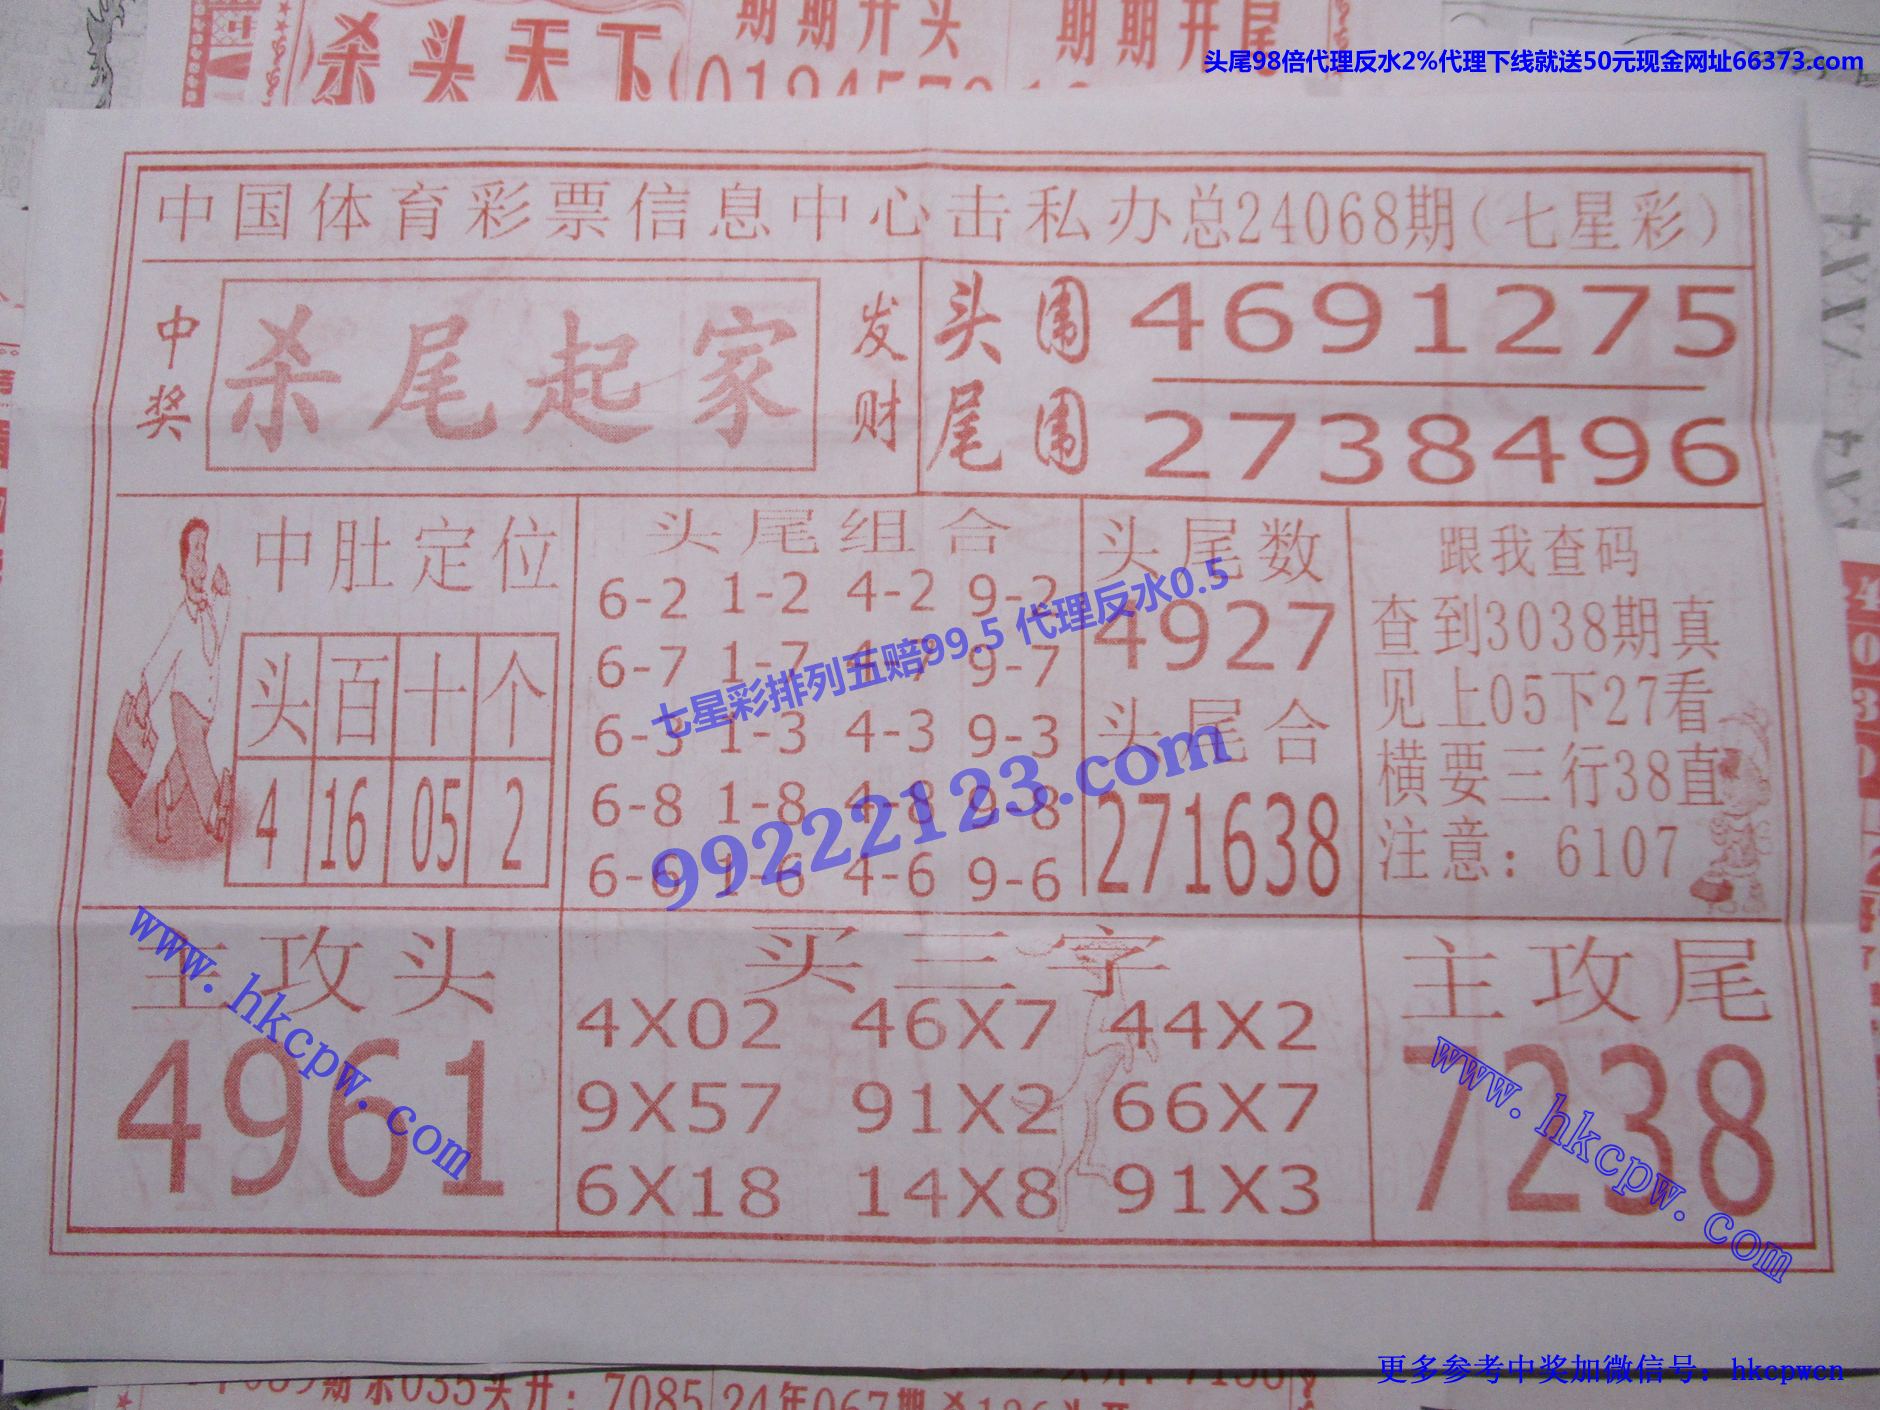 杀头天下
期期开头
期期开尾
头尾98倍代理反水2%代理下线就送50元现金网址66373.com
中国体育彩票信息中心击私办总24068期(七星彩)
中奖
杀尾起家
发财
头围
4691275
尾围
2738496
中肚定位
头 百 十 个
4 16 05 2
头尾组合
6-2 1-2 4-2 9-2
6-7 1-7 4-7 9-7
6-3 1-3 4-3 9-3
6-8 1-8 4-8 9-8
6-6 1-6 4-6 9-6
头尾数
4927
头尾合
271638
跟我查码
查到3038期真
见上05下27看
横要三行38直
注意：6107
七星彩排列五赔99.5 代理反水0.5
99222123.com
主攻头
4961
www.hkcpw.com
买三字
4X02 46X7 44X2
9X57 91X2 66X7
6X18 14X8 91X3
主攻尾
7238
www.hkcpw.com
更多参考中奖加微信号：hkcpwcn
7085
24年067期杀126头开